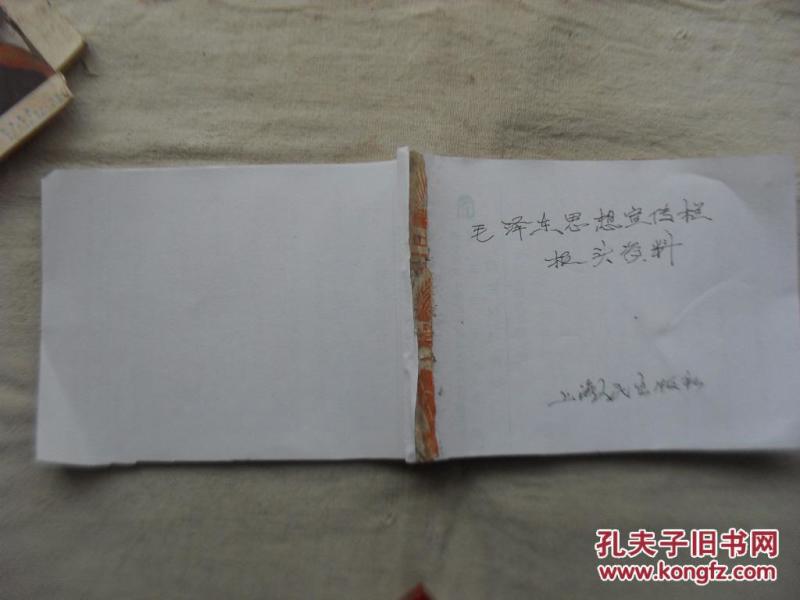 毛泽东思想宣传栏
报头资料
上海人民出版社
孔夫子旧书网
www.kongfz.com